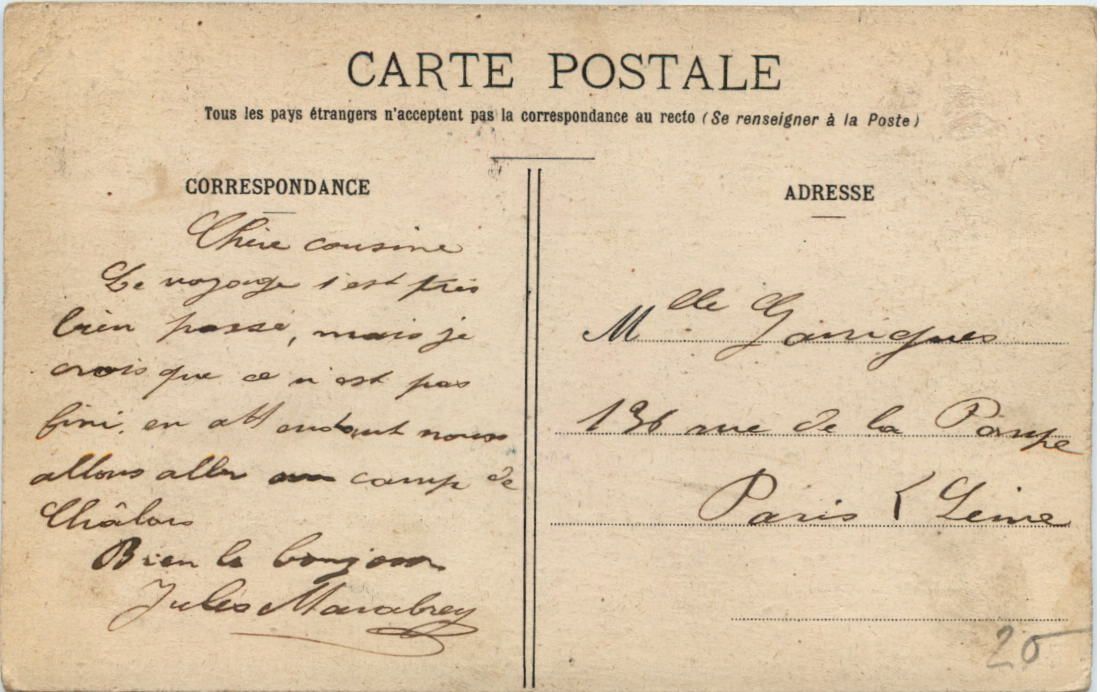 CARTE POSTALE
Tous les pays étrangers n'acceptent pas la correspondance au recto (Se renseigner à la Poste)
CORRESPONDANCE
Chère cousine
Le voyage s'est très
bien passé, mais je
crois que ce n'est pas
fini. en attendant nous
allons aller au camp de
Châlons
Bien le bonjour
Jules
ADRESSE
Mlle Garrigues
136 rue de la Pompe
Paris (Seine
20